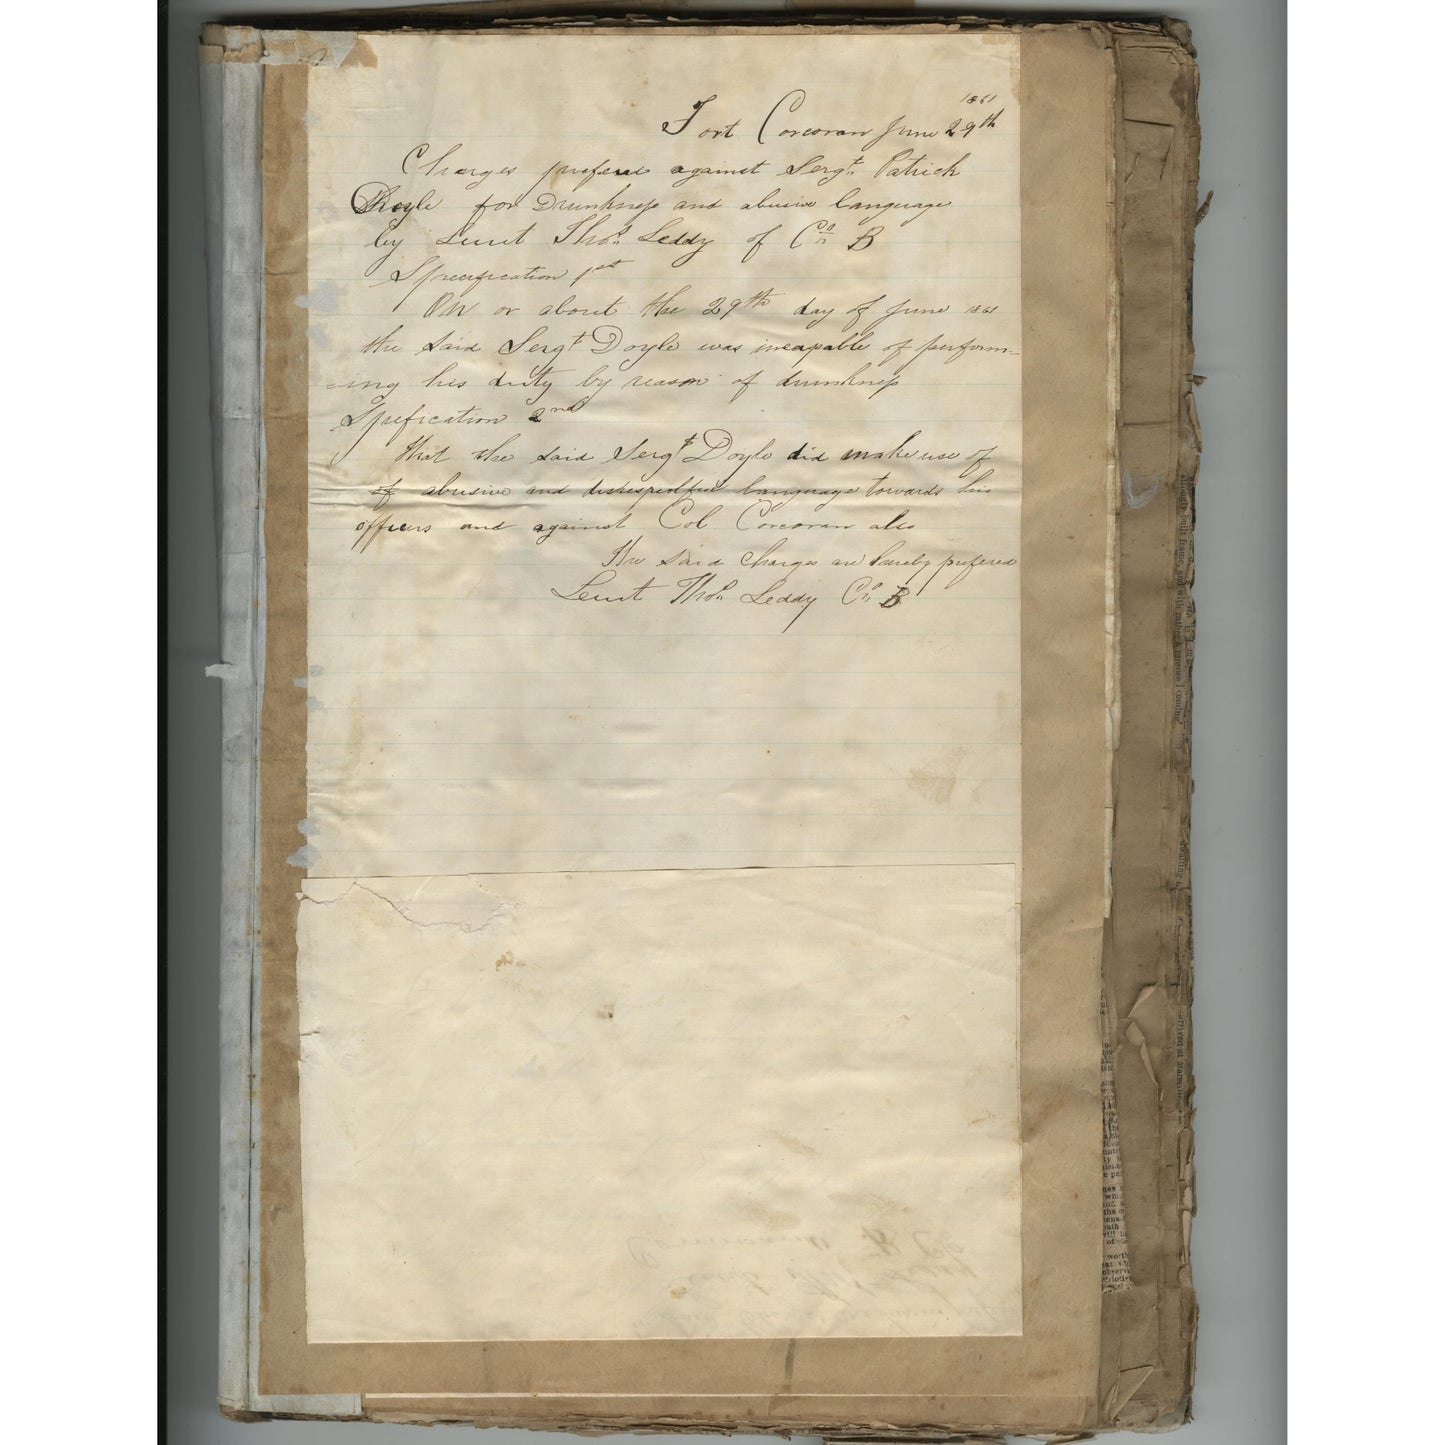 1861
Fort Corcoran June 29th
Charges prefered against Sergt. Patrick
Doyle for Drunkness and abusive language
by Leiut Thos. Leddy of Co. B
Specification 1st
On or about the 29th day of June 1861
the said Sergt Doyle was incapable of perform-
-ing his duty by reason of drunkness
Spefication 2nd
that the said Sergt Doyle did make use of
of abusive and disrespectful language towards his
officers and against Col Corcoran also
the said charges are hereby prefered
Leiut Thos. Leddy Co. B